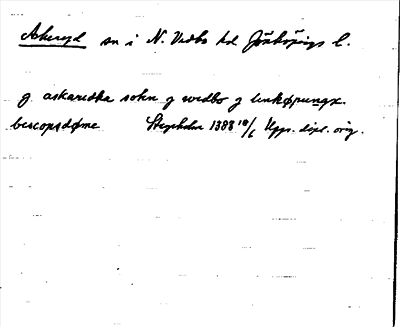 Askeryd sn i N. Vedbo hd Jönköpings l.
g askaredha sokn g wedbo g linkøpungx.
bescopsdøme Stegeholm 1383 18/6 Upps. dipl. orig.